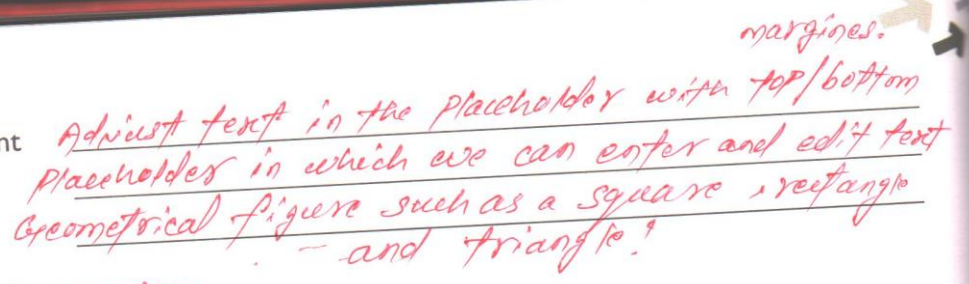 margines.
nt Adjust text in the placeholder with top/bottom
placeholder in which we can enter and edit text
Geometrical figure such as a square, rectangle
- and triangle!